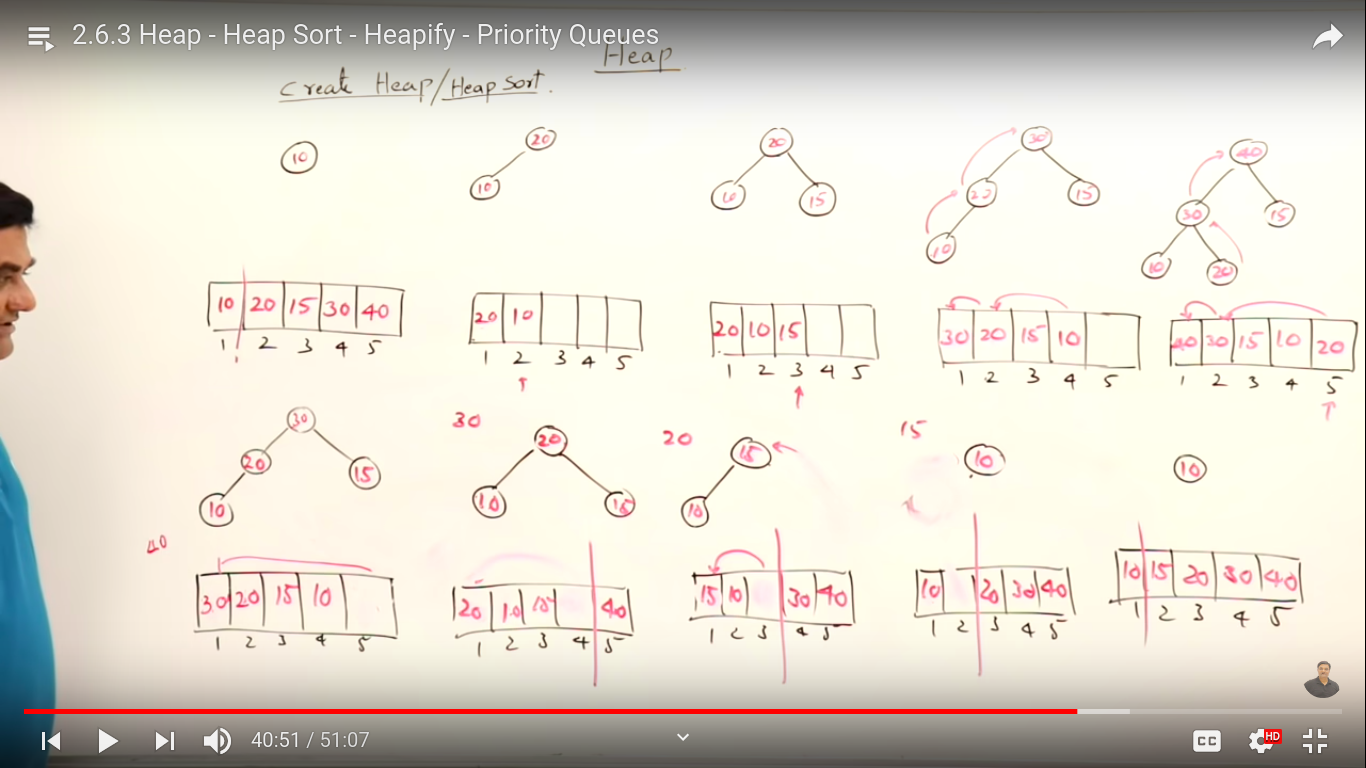 2.6.3 Heap - Heap Sort - Heapify - Priority Queues
Heap
Create Heap/Heap Sort.
10
20
10
20
10 15
30
20 15
10
40
30 15
10 20
10 20 15 30 40
1 2 3 4 5
20 10
1 2 3 4 5
20 10 15
1 2 3 4 5
30 20 15 10
1 2 3 4 5
40 30 15 10 20
1 2 3 4 5
30
20 15
10
40
30 20 15 10
1 2 3 4 5
30
20
10 15
20 10 15 40
1 2 3 4 5
20
15
10
15 10 30 40
1 2 3 4 5
15
10
10 20 30 40
1 2 3 4 5
10
10 15 20 30 40
1 2 3 4 5
40:51 / 51:07
CC
HD